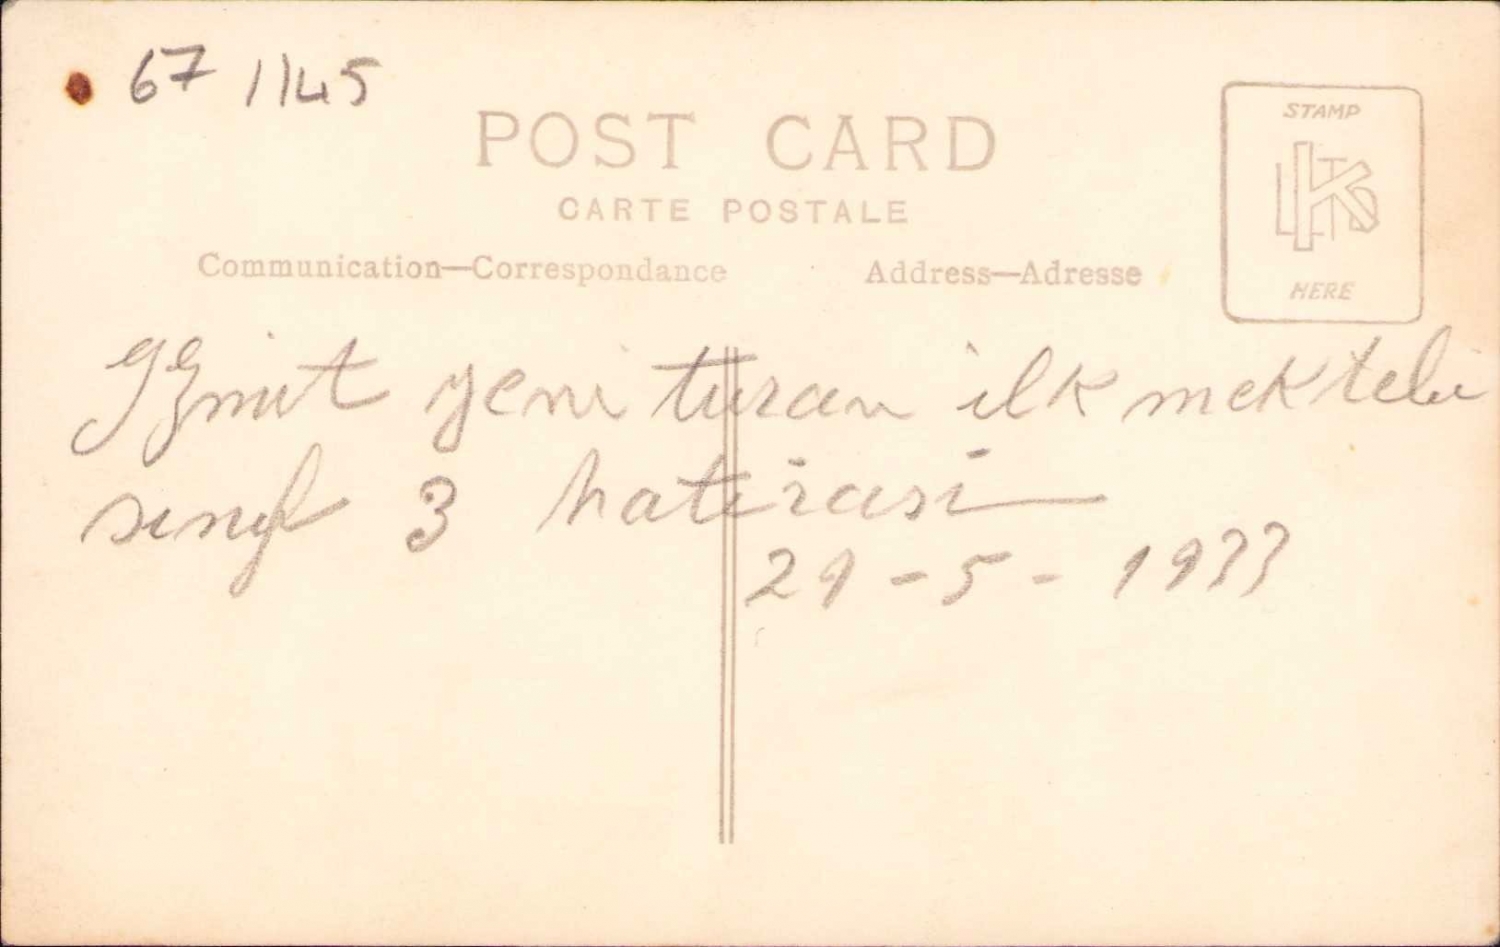 67 1145
POST CARD
CARTE POSTALE
Communication—Correspondance
Address—Adresse
STAMP
HERE
Izmit yeni turan ilk mektebi
sınıf 3 hatırası
29 - 5 - 1933